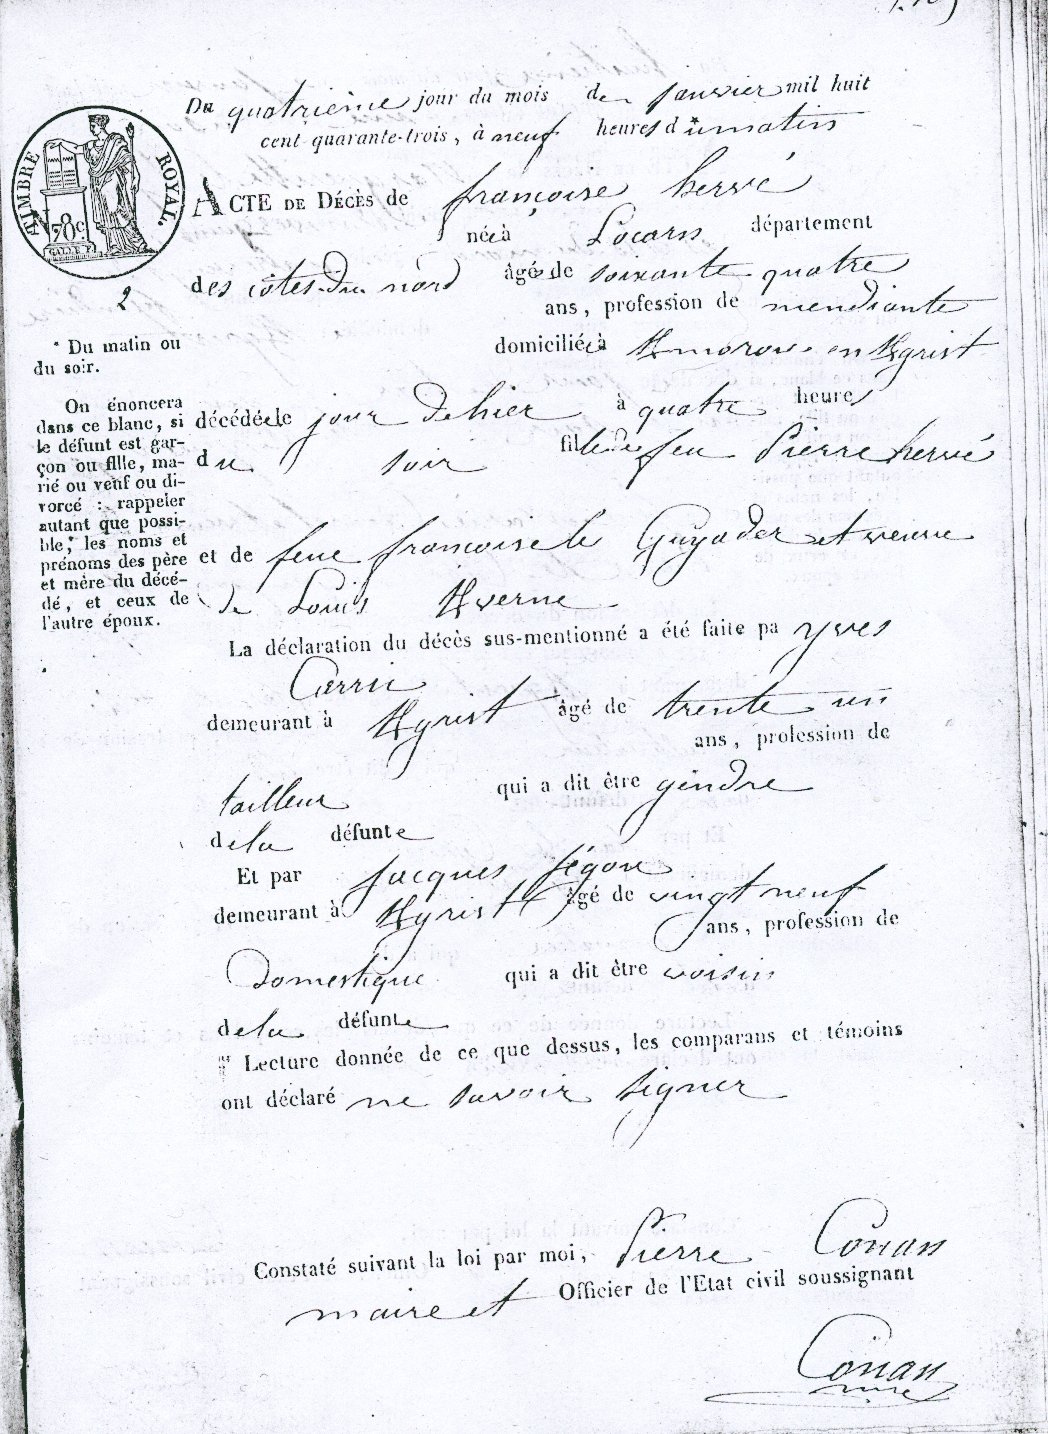 TIMBRE ROYAL.
78c
2
* Du matin ou
du soir.
On énoncera
dans ce blanc, si
le défunt est gar-
çon ou fille, ma-
rié ou veuf ou di-
vorcé : rappeler
autant que possi-
ble, les noms et
prénoms des père
et mère du décé-
dé, et ceux de
l'autre époux.
Du quatrième jour du mois de janvier mil huit
cent quarante-trois, à neuf heures d* u matin
ACTE DE DÉCÈS de françoise hervé
née à Locarn département
des côtes du nord âgée de soixante quatre
ans, profession de mendiante
domiciliée à en Kgrist
décédée le jour dehier à quatre heures
du soir fille de feu Pierre hervé
et de feue françoise le Guyader et veuve
de Louis Kverne
La déclaration du décès sus-mentionné a été faite pa yves
demeurant à Kgrist âgé de trente un
ans, profession de
tailleur qui a dit être gendre
dela défunte
Et par Jacques
demeurant à Kgrist âgé de vingt neuf
ans, profession de
Domestique qui a dit être voisin
dela défunte
Lecture donnée de ce que dessus, les comparans et témoins
ont déclaré ne savoir signer
Constaté suivant la loi par moi, Pierre Conan
maire et Officier de l'Etat civil soussignant
Conan